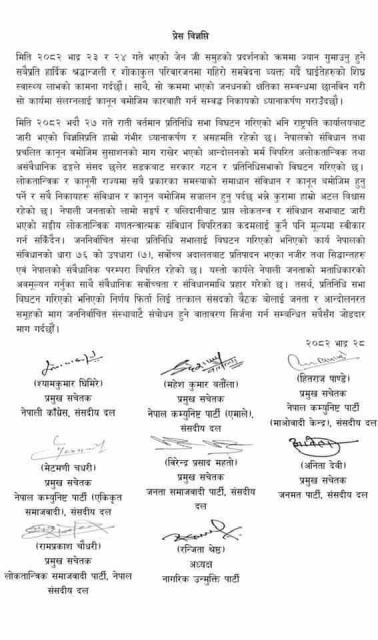 प्रेस विज्ञप्ति
मिति २०८२ भाद्र २३ र २४ गते भएको जेन जी समूहको प्रदर्शनको क्रममा ज्यान गुमाउनु हुने
सबैप्रति हार्दिक श्रद्धाञ्जली र शोकाकुल परिवारजनमा गहिरो समवेदना व्यक्त गर्दै घाईतेहरुको शिघ्र
स्वास्थ्य लाभको कामना गर्दछौं। साथै, सो क्रममा भएको जनधनको क्षतिका सम्बन्धमा छानविन गरी
सो कार्यमा संलग्नलाई कानून बमोजिम कारवाही गर्न सम्बद्ध निकायको ध्यानाकर्षण गराउँदछौं।
मिति २०८२ भदौ २७ गते राती वर्तमान प्रतिनिधि सभा विघटन गरिएको भनि राष्ट्रपति कार्यालयबाट
जारी भएको विज्ञप्तिप्रति हाम्रो गंभीर ध्यानाकर्षण र असहमति रहेको छ। नेपालको संविधान तथा
प्रचलित कानून बमोजिम सुसाशनको माग राखेर भएको आन्दोलनको मर्म विपरित अलोकतान्त्रिक तथा
असंवैधानिक ढङ्गले संसद छलेर सडकबाट सरकार गठन र प्रतिनिधिसभाको विघटन गरिएको छ।
लोकतान्त्रिक र कानूनी राज्यमा सबै प्रकारका समस्याको समाधान संविधान र कानून बमोजिम हुनु
पर्ने र सबै निकायहरु संविधान र कानून बमोजिम सञ्चालन हुनु पर्दछ भन्ने कुरामा हाम्रो अटल विश्वास
रहेको छ। नेपाली जनताको लामो सङ्घर्ष र बलिदानीबाट प्राप्त लोकतन्त्र र संविधान सभाबाट जारी
भएको सङ्घीय लोकतान्त्रिक गणतन्त्रात्मक संविधान विपरितका कदमलाई कुनै पनि मूल्यमा स्वीकार
गर्न सकिँदैन। जननिर्वाचित संस्था प्रतिनिधि सभालाई विघटन गरिएको भनिएको कार्य नेपालको
संविधानको धारा ७६ को उपधारा (७), सर्वोच्च अदालतबाट प्रतिपादन भएका नजीर तथा सिद्धान्तहरु
एवं नेपालको संवैधानिक परम्परा विपरित रहेको छ। यस्तो कार्यले नेपाली जनताको मताधिकारको
अवमूल्यन गर्नुका साथै संवैधानिक सर्वोच्चता र संविधानमाथि प्रहार गरेको छ। तसर्थ, प्रतिनिधि सभा
विघटन गरिएको भनिएको निर्णय फिर्ता लिई तत्काल संसदको बैठक बोलाई जनता र आन्दोलनरत
समूहको माग जननिर्वाचित संस्थाबाटै संबोधन हुने वातावरण सिर्जना गर्न सम्बन्धित सबैसँग जोडदार
माग गर्दछौं।
२०८२ भाद्र २८
(श्यामकुमार घिमिरे)
प्रमुख सचेतक
नेपाली काँग्रेस, संसदीय दल
(महेश कुमार बर्तौला)
प्रमुख सचेतक
नेपाल कम्युनिष्ट पार्टी (एमाले),
संसदीय दल
(हितराज पाण्डे)
प्रमुख सचेतक
नेपाल कम्युनिष्ट पार्टी
(माओवादी केन्द्र), संसदीय दल
(मेटमणी चधरी)
प्रमुख सचेतक
नेपाल कम्युनिष्ट पार्टी (एकिकृत
समाजवादी), संसदीय दल
(विरेन्द्र प्रसाद महतो)
प्रमुख सचेतक
जनता समाजवादी पार्टी, संसदीय
दल
(अनिता देवी)
प्रमुख सचेतक
जनमत पार्टी, संसदीय दल
(रामप्रकाश चौधरी)
प्रमुख सचेतक
लोकतान्त्रिक समाजवादी पार्टी, नेपाल
संसदीय दल
(रन्जिता श्रेष्ठ)
अध्यक्ष
नागरिक उन्मुक्ति पार्टी